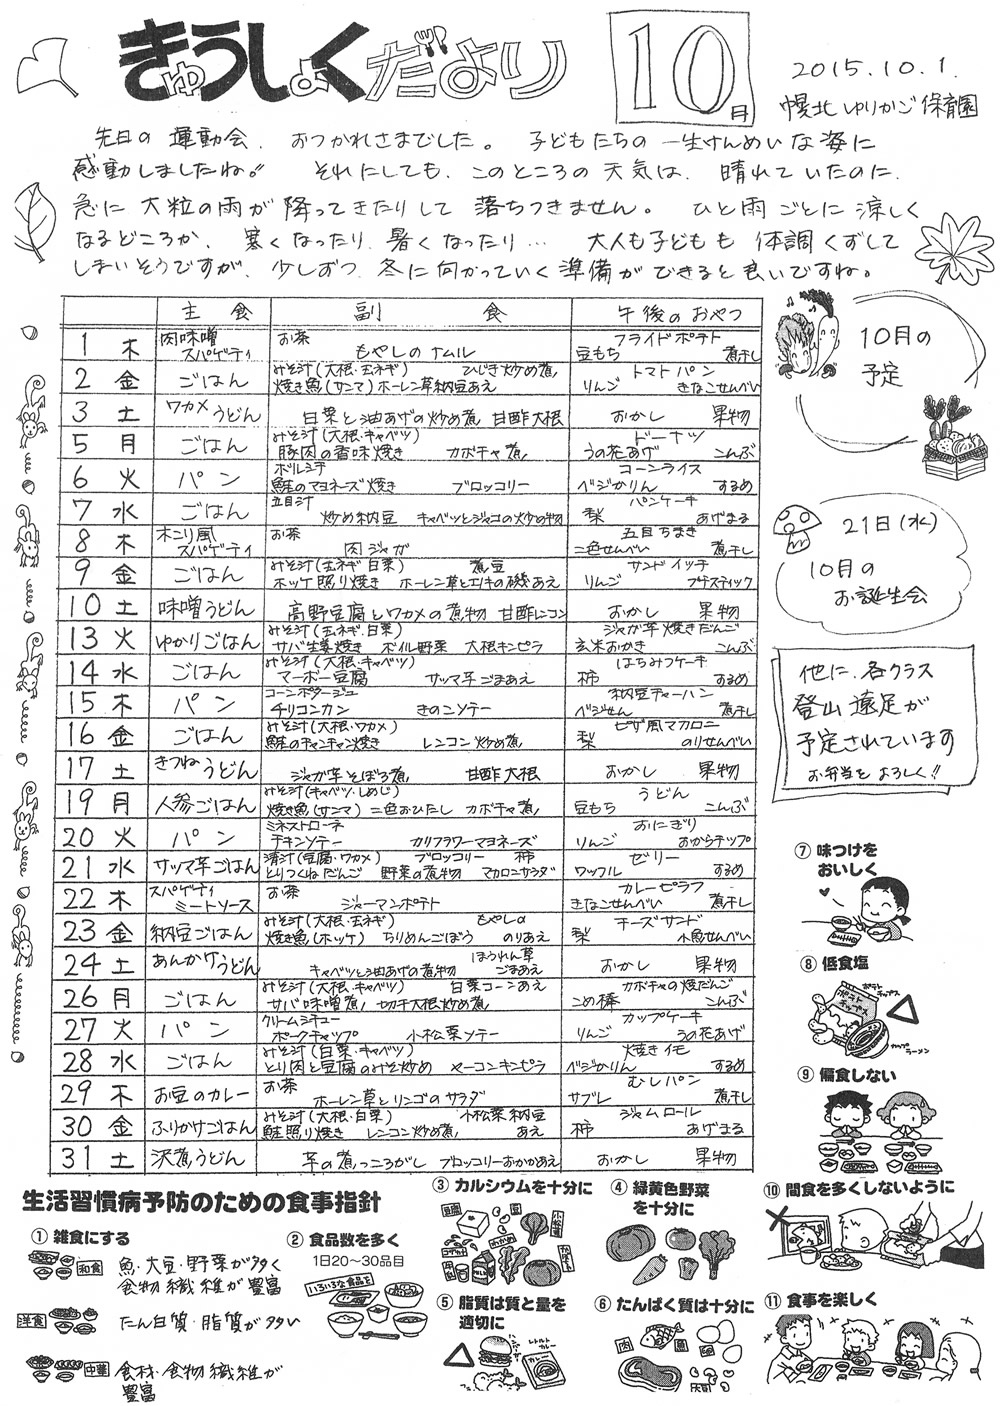 きゅうしょくだより
10月
2015.10.1.
幌北ゆりかご保育園
先日の運動会、おつかれさまでした。子どもたちの一生けんめいな姿に
感動しましたね。それにしても、このところの天気は、晴れていたのに、
急に大粒の雨が降ってきたりして落ちつきません。ひと雨ごとに涼しく
なるどころか、寒くなったり、暑くなったり… 大人も子どもも体調くずして
しまいそうですが、少しずつ冬に向かっていく準備ができると良いですね。
主食 副食 午後のおやつ
1 木 肉味噌スパゲティ お茶 もやしのナムル フライドポテト 豆もち 煮干し
2 金 ごはん みそ汁(大根・玉ネギ) ひじき炒め煮 焼き魚(サンマ) ホーレン草納豆あえ トマトパン りんご きなこせんべい
3 土 ワカメうどん 白菜と油あげの炒め煮 甘酢大根 おかし 果物
5 月 ごはん みそ汁(大根・キャベツ) 豚肉の香味焼き カボチャ煮 ドーナツ うの花あげ こんぶ
6 火 パン ボルシチ 鮭のマヨネーズ焼き ブロッコリー コーンライス ベジかりん するめ
7 水 ごはん 五目汁 炒め納豆 キャベツとジャコの炒め物 パンケーキ 梨 あげまる
8 木 木こり風スパゲティ お茶 肉ジャガ 五目ちまき 二色せんべい 煮干し
9 金 ごはん みそ汁(玉ネギ・白菜) 煮豆 ホッケ照り焼き ホーレン草とエノキの磯あえ サンドイッチ りんご プチスティック
10 土 味噌うどん 高野豆腐とワカメの煮物 甘酢レンコン おかし 果物
13 火 ゆかりごはん みそ汁(玉ネギ・白菜) サバ生姜焼き ボイル野菜 大根キンピラ ジャガ芋焼きだんご 玄米おかき こんぶ
14 水 ごはん みそ汁(大根・キャベツ) マーボー豆腐 サツマ芋ごまあえ はちみつケーキ 柿 するめ
15 木 パン コーンポタージュ チリコンカン きのこソテー 納豆チャーハン ベジせん 煮干し
16 金 ごはん みそ汁(大根・ワカメ) 鮭のチャンチャン焼き レンコン炒め煮 ピザ風マカロニ 梨 のりせんべい
17 土 きつねうどん ジャガ芋そぼろ煮 甘酢大根 おかし 果物
19 月 人参ごはん みそ汁(キャベツ・しめじ) 焼き魚(サンマ) 二色おひたし カボチャ煮 うどん 豆もち こんぶ
20 火 パン ミネストローネ チキンソテー カリフラワーマヨネーズ おにぎり りんご おからチップ
21 水 サツマ芋ごはん 清汁(豆腐・ワカメ) ブロッコリー 柿 とりつくねだんご 野菜の煮物 マカロニサラダ ゼリー ワッフル するめ
22 木 スパゲティミートソース お茶 ジャーマンポテト カレーピラフ きなこせんべい 煮干し
23 金 納豆ごはん みそ汁(大根・玉ネギ) もやしの 焼き魚(ホッケ) ちりめんごぼう のりあえ チーズサンド 梨 小魚せんべい
24 土 あんかけうどん キャベツと油あげの煮物 ほうれん草ごまあえ おかし 果物
26 月 ごはん みそ汁(大根・キャベツ) 白菜コーンあえ サバ味噌煮 切干大根炒め煮 カボチャの焼だんご こめ棒 こんぶ
27 火 パン クリームシチュー ポークチャップ 小松菜ソテー カップケーキ りんご うの花あげ
28 水 ごはん みそ汁(白菜・キャベツ) とり肉と豆腐のみそ炒め ベーコンキンピラ 焼きイモ ベジかりん するめ
29 木 お豆のカレー お茶 ホーレン草とリンゴのサラダ むしパン サブレ 煮干し
30 金 ふりかけごはん みそ汁(大根・白菜) 小松菜納豆 鮭照り焼き レンコン炒め煮 あえ ジャムロール 柿 あげまる
31 土 沢煮うどん 芋の煮っころがし ブロッコリーおかかあえ おかし 果物
10月の
予定
21日(水)
10月の
お誕生会
他に、各クラス
登山遠足が
予定されています
お弁当をよろしく!!
生活習慣病予防のための食事指針
① 雑食にする
和食 魚・大豆・野菜が多く
食物繊維が豊富
洋食 たん白質・脂質が多い
中華 食材・食物繊維が
豊富
② 食品数を多く
1日20〜30品目
いろいろな食品を
③ カルシウムを十分に
④ 緑黄色野菜
を十分に
⑤ 脂質は質と量を
適切に
レトルトカレー
⑥ たんぱく質は十分に
肉 魚 卵
⑦ 味つけを
おいしく
⑧ 低食塩
ポテトチップス
ポテトチップス
カップラーメン
⑨ 偏食しない
⑩ 間食を多くしないように
⑪ 食事を楽しく